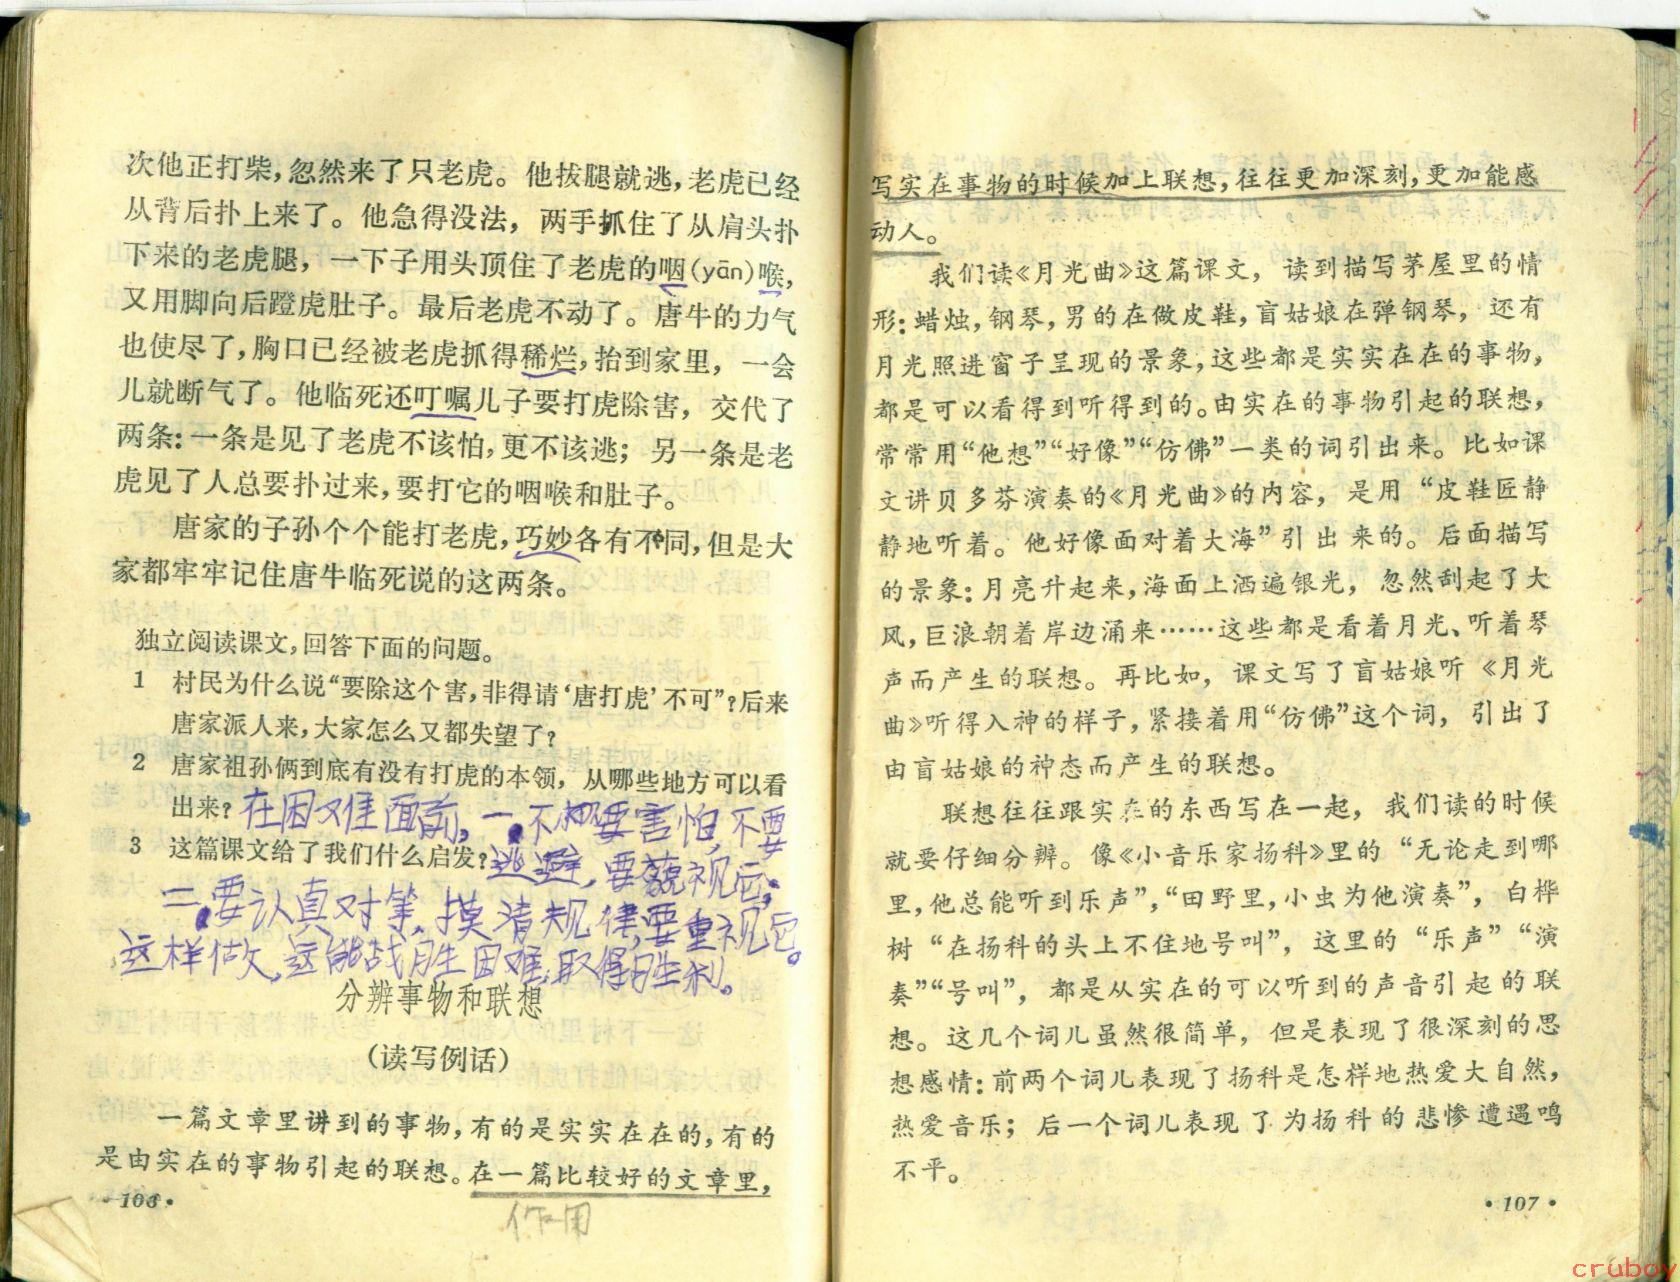 次他正打柴，忽然来了只老虎。他拔腿就逃，老虎已经
从背后扑上来了。他急得没法，两手抓住了从肩头扑
下来的老虎腿，一下子用头顶住了老虎的咽(yān)喉，
又用脚向后蹬虎肚子。最后老虎不动了。唐牛的力气
也使尽了，胸口已经被老虎抓得稀烂，抬到家里，一会
儿就断气了。他临死还叮嘱儿子要打虎除害，交代了
两条：一条是见了老虎不该怕，更不该逃；另一条是老
虎见了人总要扑过来，要打它的咽喉和肚子。
唐家的子孙个个能打老虎，巧妙各有不同，但是大
家都牢牢记住唐牛临死说的这两条。
独立阅读课文，回答下面的问题。
1 村民为什么说“要除这个害，非得请‘唐打虎’不可”？后来
唐家派人来，大家怎么又都失望了？
2 唐家祖孙俩到底有没有打虎的本领，从哪些地方可以看
出来？在困难面前，一、不要害怕，不要
3 这篇课文给了我们什么启发？逃避，要藐视它；
二、要认真对待，摸清规律，要重视它。
这样做，这能战胜困难，取得胜利。
分辨事物和联想
（读写例话）
一篇文章里讲到的事物，有的是实实在在的，有的
是由实在的事物引起的联想。在一篇比较好的文章里，
·106·
作用
写实在事物的时候加上联想，往往更加深刻，更加能感
动人。
我们读《月光曲》这篇课文，读到描写茅屋里的情
形：蜡烛，钢琴，男的在做皮鞋，盲姑娘在弹钢琴，还有
月光照进窗子呈现的景象，这些都是实实在在的事物，
都是可以看得到听得到的。由实在的事物引起的联想，
常常用“他想”“好像”“仿佛”一类的词引出来。比如课
文讲贝多芬演奏的《月光曲》的内容，是用“皮鞋匠静
静地听着。他好像面对着大海”引出来的。后面描写
的景象：月亮升起来，海面上洒遍银光，忽然刮起了大
风，巨浪朝着岸边涌来……这些都是看着月光、听着琴
声而产生的联想。再比如，课文写了盲姑娘听《月光
曲》听得入神的样子，紧接着用“仿佛”这个词，引出了
由盲姑娘的神态而产生的联想。
联想往往跟实在的东西写在一起，我们读的时候
就要仔细分辨。像《小音乐家扬科》里的“无论走到哪
里，他总能听到乐声”，“田野里，小虫为他演奏”，白桦
树“在扬科的头上不住地号叫”，这里的“乐声”“演
奏”“号叫”，都是从实在的可以听到的声音引起的联
想。这几个词儿虽然很简单，但是表现了很深刻的思
想感情：前两个词儿表现了扬科是怎样地热爱大自然，
热爱音乐；后一个词儿表现了为扬科的悲惨遭遇鸣
不平。
·107·
cruboy